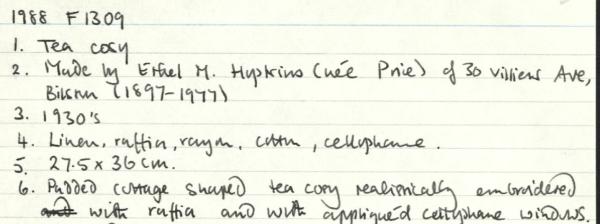 1988 F1309
1. Tea cosy
2. Made by Ethel M. Hopkins (née Price) of 30 Villiers Ave,
Bilston (1897-1977)
3. 1930's
4. Linen, raffia, rayon, cotton, cellophane.
5. 27.5 x 36 cm.
6. Padded cottage shaped tea cosy realistically embroidered
and with raffia and with appliquéd cellophane windows.